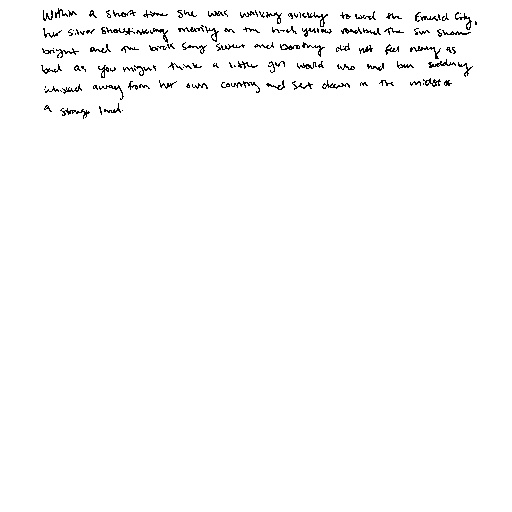 Within a short time she was walking quickly toward the Emerald City,
her silver shoes tinkling merrily on the hard yellow roadbed. The sun shone
bright and the birds sang sweet and Dorothy did not feel nearly as
bad as you might think a little girl would who had been suddenly
whisked away from her own country and set down in the midst of
a strange land.